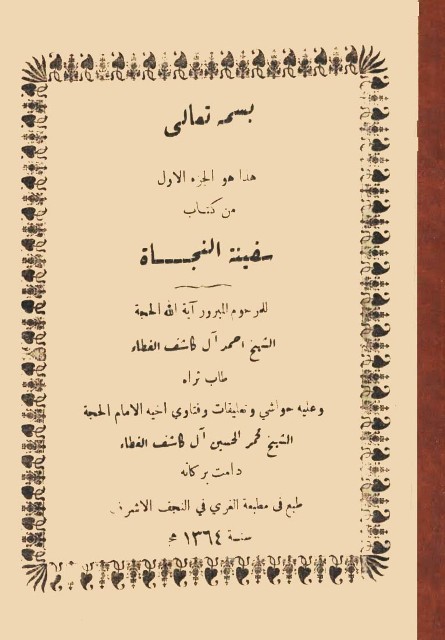 بسمه تعالى
هذا هو الجزء الاول
من كتاب
سفينة النجاة
للمرحوم المبرور آية الله الحجة
الشيخ احمد آل كاشف الغطاء
طاب ثراه
وعليه حواشي وتعليقات وفتاوي أخيه الامام الحجة
الشيخ محمد الحسين آل كاشف الغطاء
دامت بركاته
طبع في مطبعة الغري في النجف الاشرف
سنة ١٣٦٤ هج